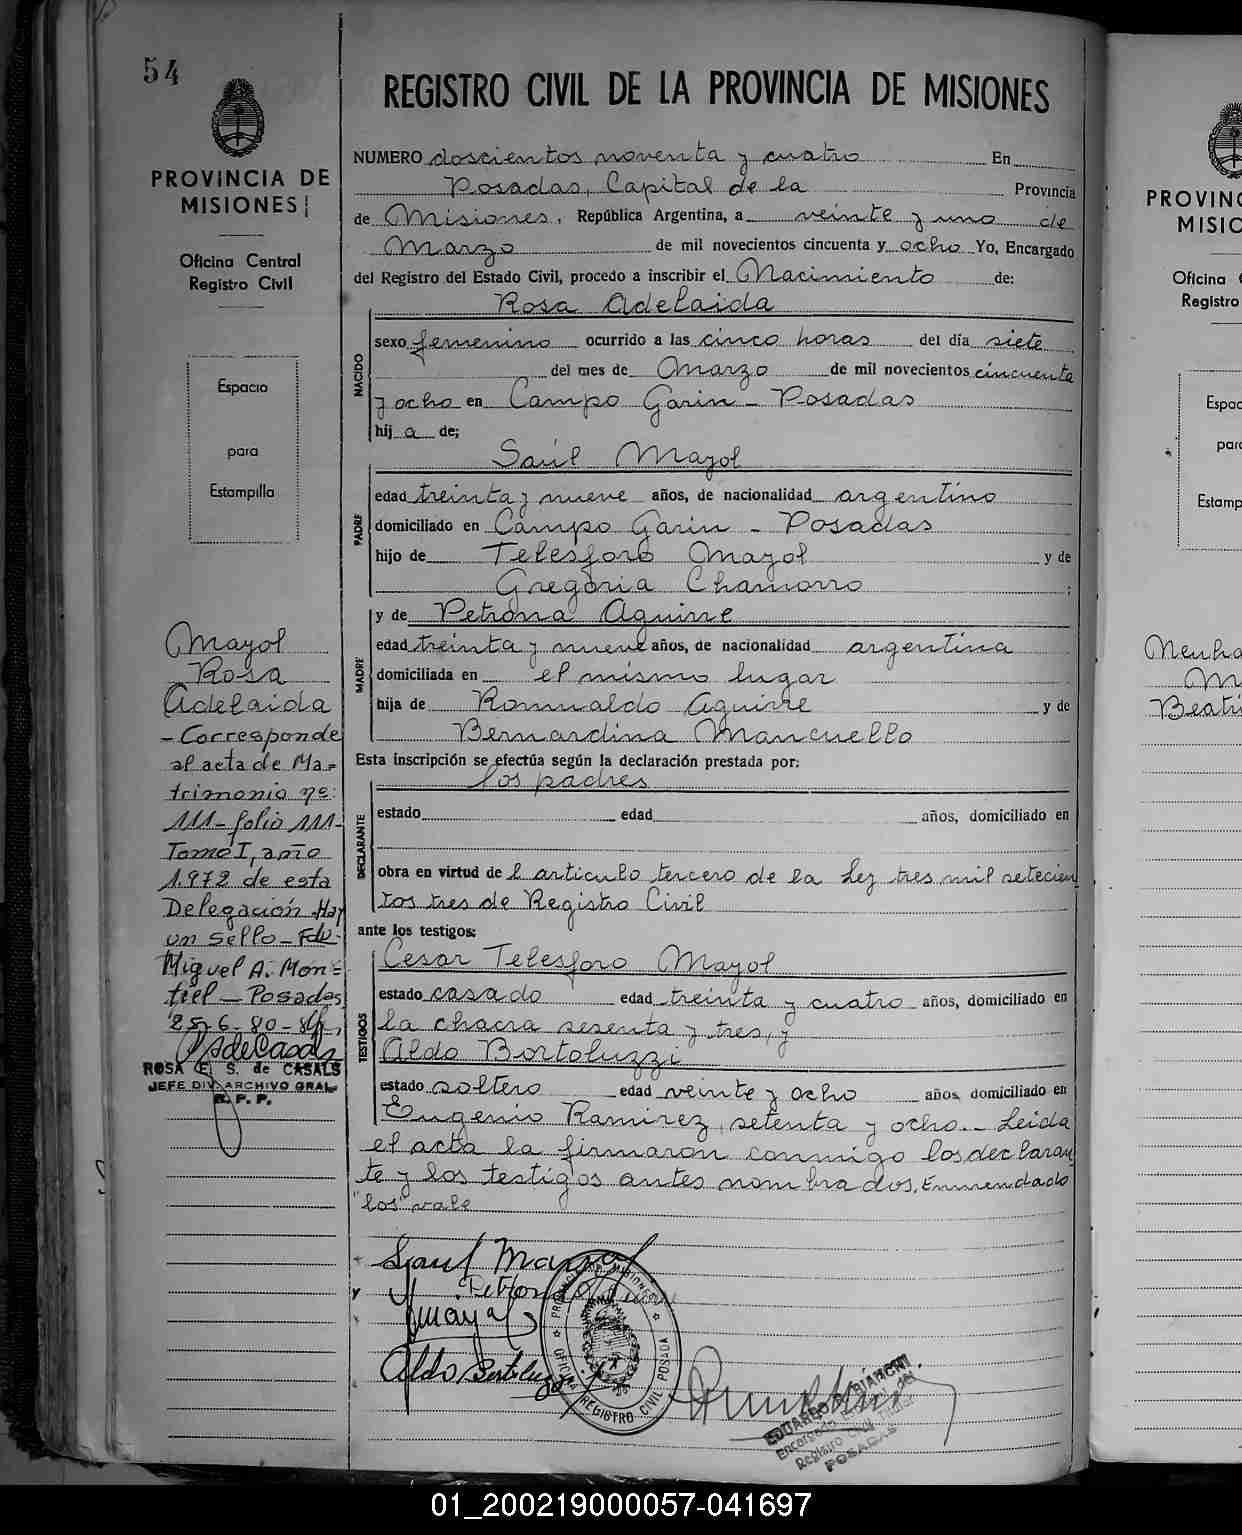 54
PROVINCIA DE
MISIONES
Oficina Central
Registro Civil
Espacio
para
Estampilla
Mayol
Rosa
Adelaida
- Corresponde
al acta de Ma=
trimonio nº:
111- folio 111-
Tomo I, año
1.972 de esta
Delegación. Hay
un sello - Fdo-
Miguel A. Mon=
tiel - Posadas
25-6-80-
ROSA E. S. de CASALS
JEFE DIV. ARCHIVO GRAL.
R. P. P.
REGISTRO CIVIL DE LA PROVINCIA DE MISIONES
NUMERO doscientos noventa y cuatro En
Posadas, Capital de la Provincia
de Misiones, República Argentina, a veinte y uno de
Marzo de mil novecientos cincuenta y ocho Yo, Encargado
del Registro del Estado Civil, procedo a inscribir el Nacimiento de:
Rosa Adelaida
NACIDO
sexo femenino ocurrido a las cinco horas del día siete
del mes de Marzo de mil novecientos cincuenta
y ocho en Campo Garin - Posadas
hij a de;
Saúl Mayol
PADRE
edad treinta y nueve años, de nacionalidad argentino
domiciliado en Campo Garin - Posadas
hijo de Telesforo Mayol y de
Gregoria Chamorro ;
y de Petrona Aguirre
MADRE
edad treinta y nueve años, de nacionalidad argentina
domiciliada en el mismo lugar
hija de Romualdo Aguirre y de
Bernardina Mancuello
Esta inscripción se efectúa según la declaración prestada por:
los padres
DECLARANTE
estado edad años, domiciliado en
obra en virtud de l artículo tercero de la Ley tres mil setecien
tos tres de Registro Civil
ante los testigos:
Cesar Telesforo Mayol
TESTIGOS
estado casado edad treinta y cuatro años, domiciliado en
la chacra sesenta y tres, y
Aldo Bortoluzzi
estado soltero edad veinte y ocho años, domiciliado en
Eugenio Ramirez, setenta y ocho.- Leida
el acta la firmaron conmigo los declaran
te y los testigos antes nombrados. Enmendado
"los" vale
Saul Mayol
Petrona
Aldo Bortoluzzi
PROVINCIA DE MISIONES
OFICINA REGISTRO CIVIL POSADA
EDUARDO R. BIANCHI
Encargado
Registro Civil
POSADAS
PROVINC
MISIC
Oficina
Registro
Espac
para
Estamp
Beatri
01_200219000057-041697